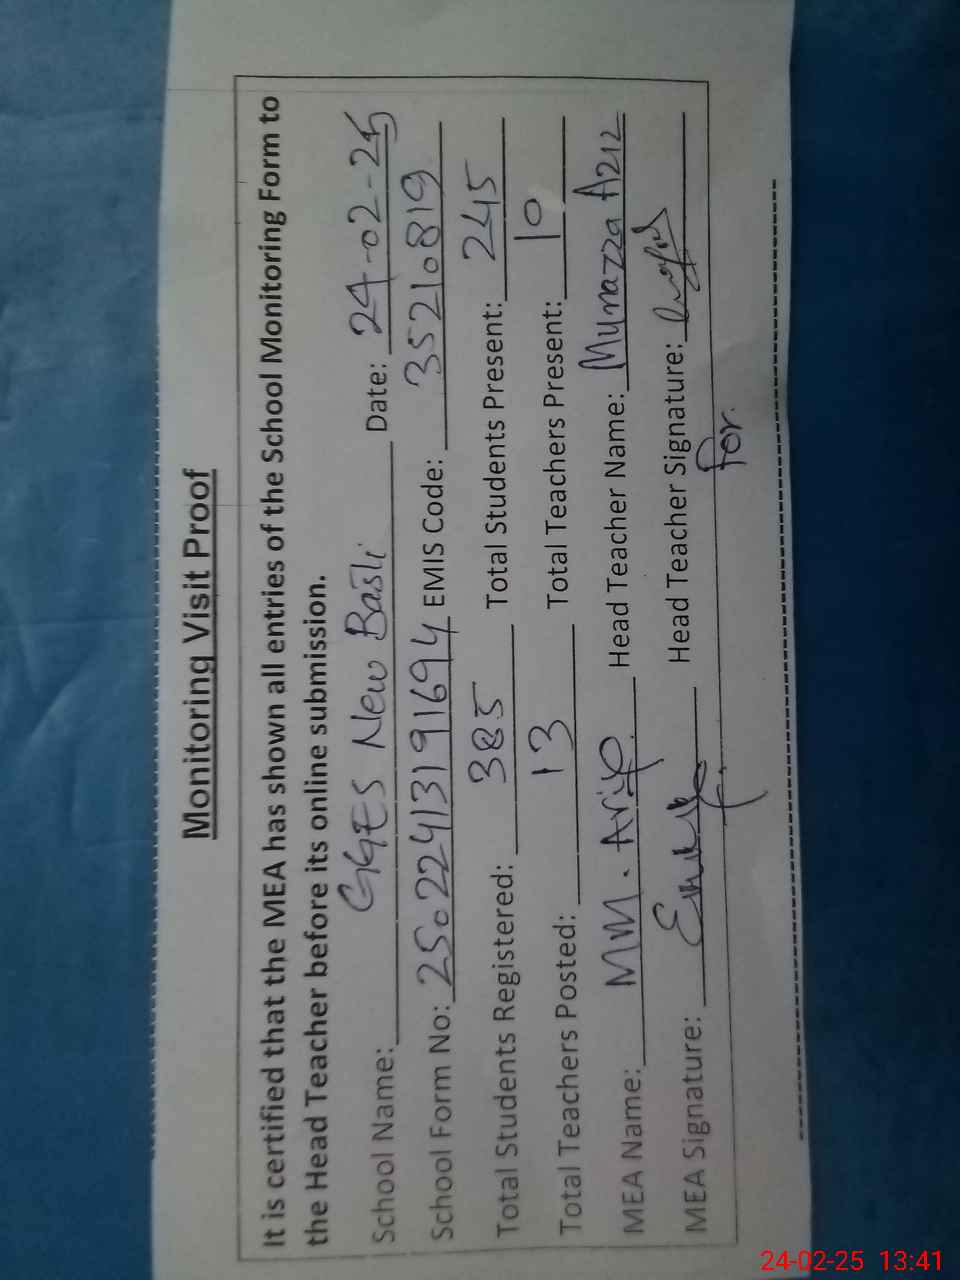 Monitoring Visit Proof
It is certified that the MEA has shown all entries of the School Monitoring Form to
the Head Teacher before its online submission.
School Name: GGES New Basti Date: 24-02-25
School Form No: 25022413191694 EMIS Code: 35210819
Total Students Registered: 385 Total Students Present: 245
Total Teachers Posted: 13 Total Teachers Present: 10
MEA Name: MM. Arif Head Teacher Name: Munazza Aziz
MEA Signature: Head Teacher Signature:
For.
24-02-25 13:41